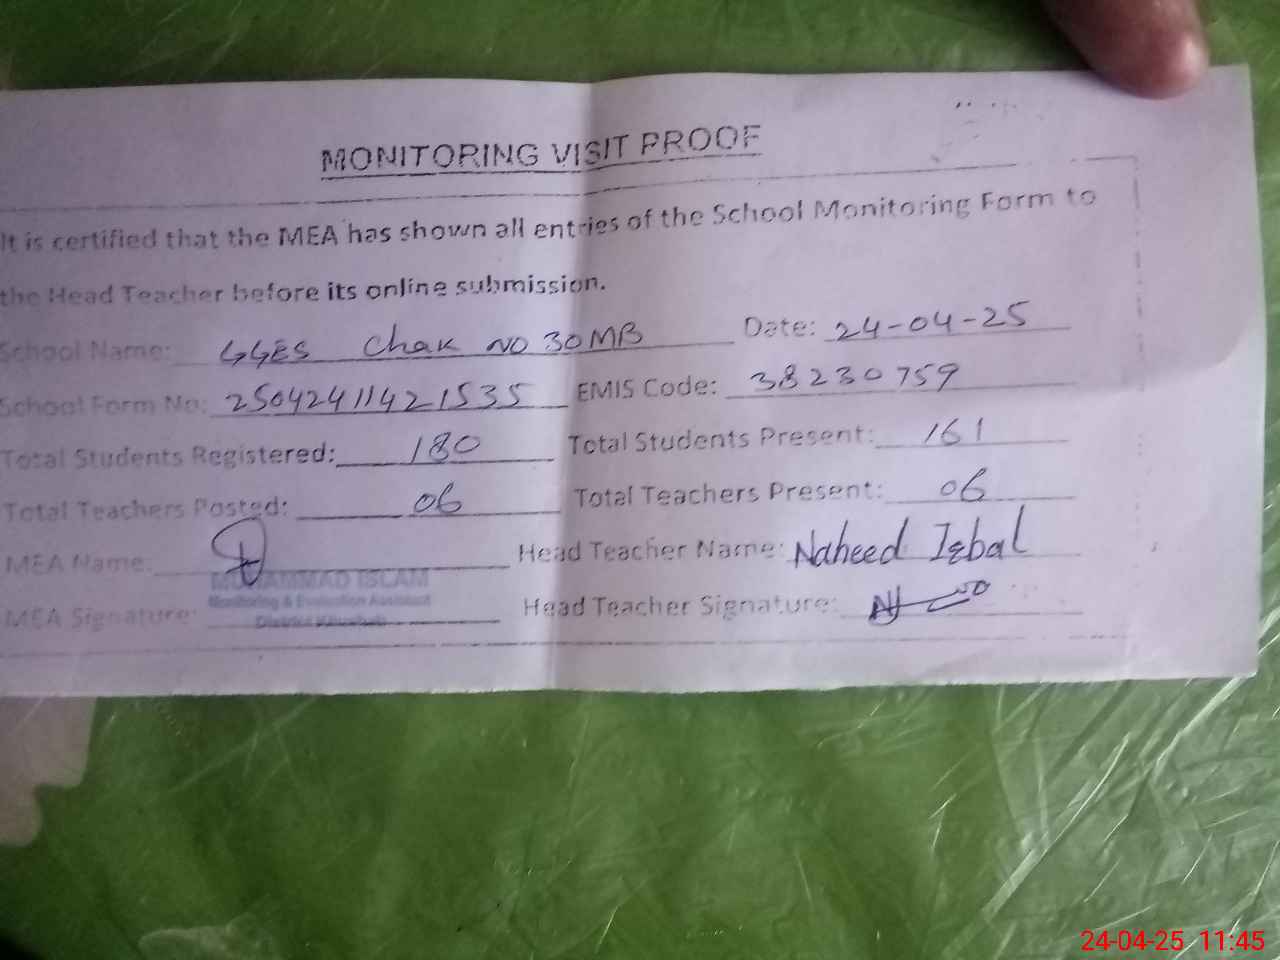 MONITORING VISIT PROOF
It is certified that the MEA has shown all entries of the School Monitoring Form to
the Head Teacher before its online submission.
School Name: GGES Chak NO 30 MB Date: 24-04-25
School Form No: 25042411421535 EMIS Code: 38230759
Total Students Registered: 180 Total Students Present: 161
Total Teachers Posted: 06 Total Teachers Present: 06
MEA Name: Head Teacher Name: Naheed Iqbal
MUHAMMAD ISLAM
Monitoring & Evaluation Assistant
MEA Signature: Head Teacher Signature:
District Khushab
24-04-25 11:45